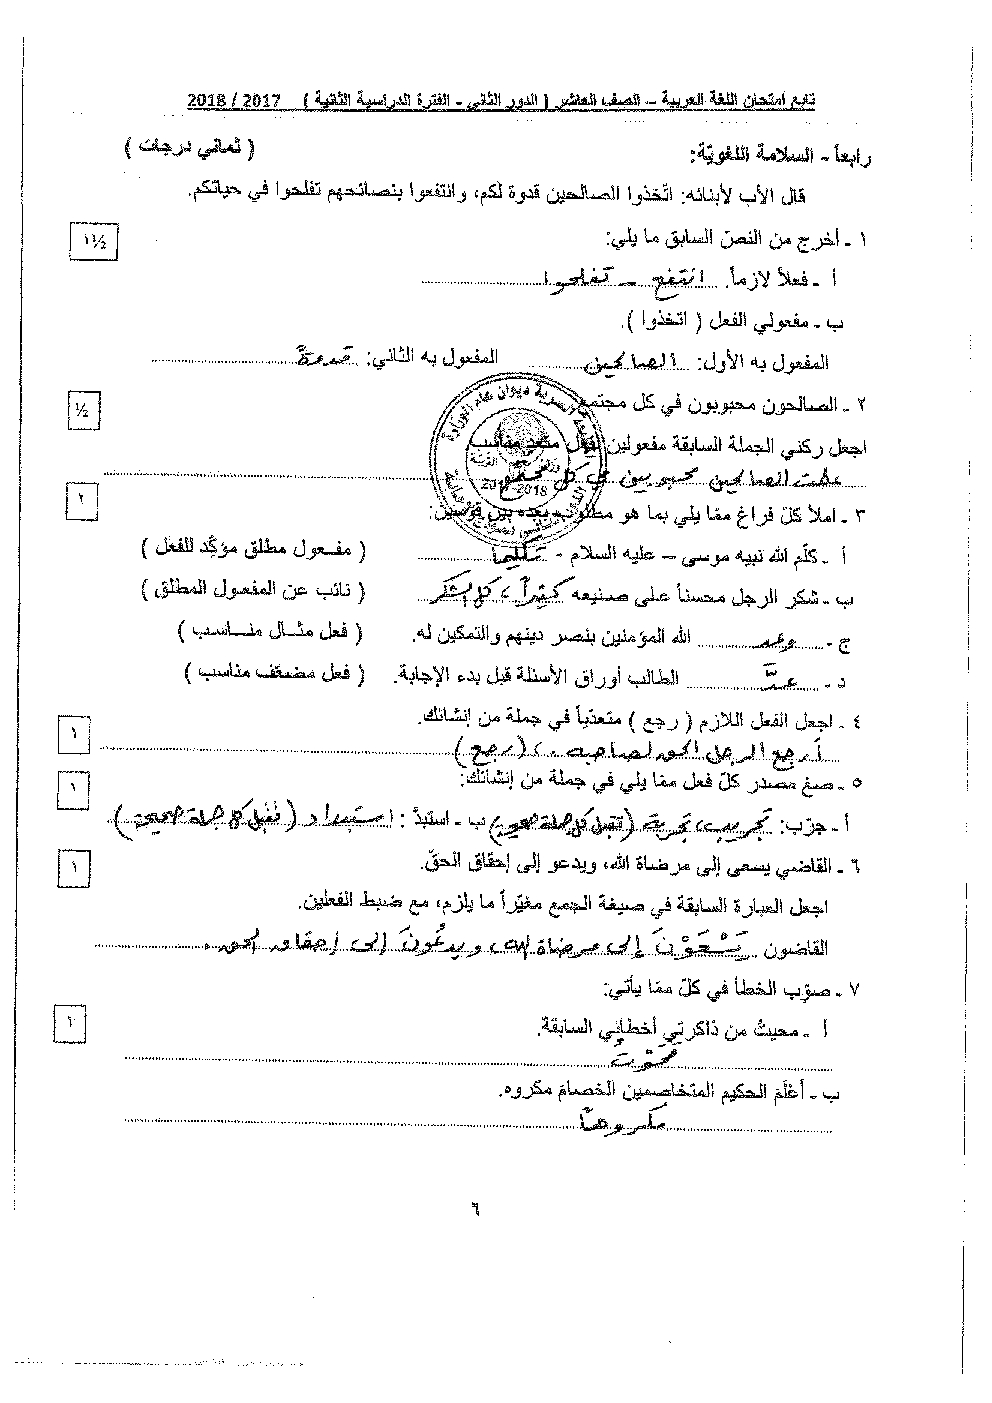 تابع امتحان اللغة العربية – الصف العاشر ( الدور الثاني - الفترة الدراسية الثانية ) 2017 / 2018
رابعاً - السلامة اللغويّة: ( ثماني درجات )
قال الأب لأبنائه: اتّخذوا الصالحين قدوة لكم، وانتفعوا بنصائحهم تفلحوا في حياتكم.
١ - أخرج من النصّ السابق ما يلي: ١½
أ - فعلاً لازماً. انتفع – تفلحوا
ب - مفعولي الفعل ( اتخذوا ).
المفعول به الأول: الصالحين المفعول به الثاني: قدوةً
٢ - الصالحون محبوبون في كل مجتمع ½
اجعل ركني الجملة السابقة مفعولين لفعل متعد مناسب.
علمت الصالحين محبوبين في كل مجتمع
٣ - املأ كلّ فراغ ممّا يلي بما هو مطلوب بعده بين قوسين: ٢
أ - كلّم الله نبيه موسى – عليه السلام - تكليماً ( مفعول مطلق مؤكِّد للفعل )
ب - شكر الرجل محسناً على صنيعه كثيراً ، كل الشكر ( نائب عن المفعول المطلق )
ج - وعد الله المؤمنين بنصر دينهم والتمكين له. ( فعل مثال مناسب )
د - عدَّ الطالب أوراق الأسئلة قبل بدء الإجابة. ( فعل مضعّف مناسب )
٤ - اجعل الفعل اللازم ( رجع ) متعدّياً في جملة من إنشائك. ١
أرجع الرجل الحق لصاحبه ، (رجع)
٥ - صغ مصدر كلّ فعل ممّا يلي في جملة من إنشائك: ١
أ - جرّب: تجريب، تجربة (تقبل كل جملة صحيحة) ب - استبدّ : استبداد (تقبل كل جملة صحيحة)
٦ - القاضي يسعى إلى مرضاة الله، ويدعو إلى إحقاق الحقّ. ١
اجعل العبارة السابقة في صيغة الجمع مغيّراً ما يلزم، مع ضبط الفعلين.
القاضون يَسْعَوْنَ إلى مرضاة الله، ويدعُونَ إلى إحقاق الحق.
٧ - صوّب الخطأ في كلّ ممّا يأتي:
أ - محيتُ من ذاكرتي أخطائي السابقة. ١
محوْتُ
ب - أعْلَمَ الحكيم المتخاصمين الخصامَ مكروه.
مكروهاً
٦